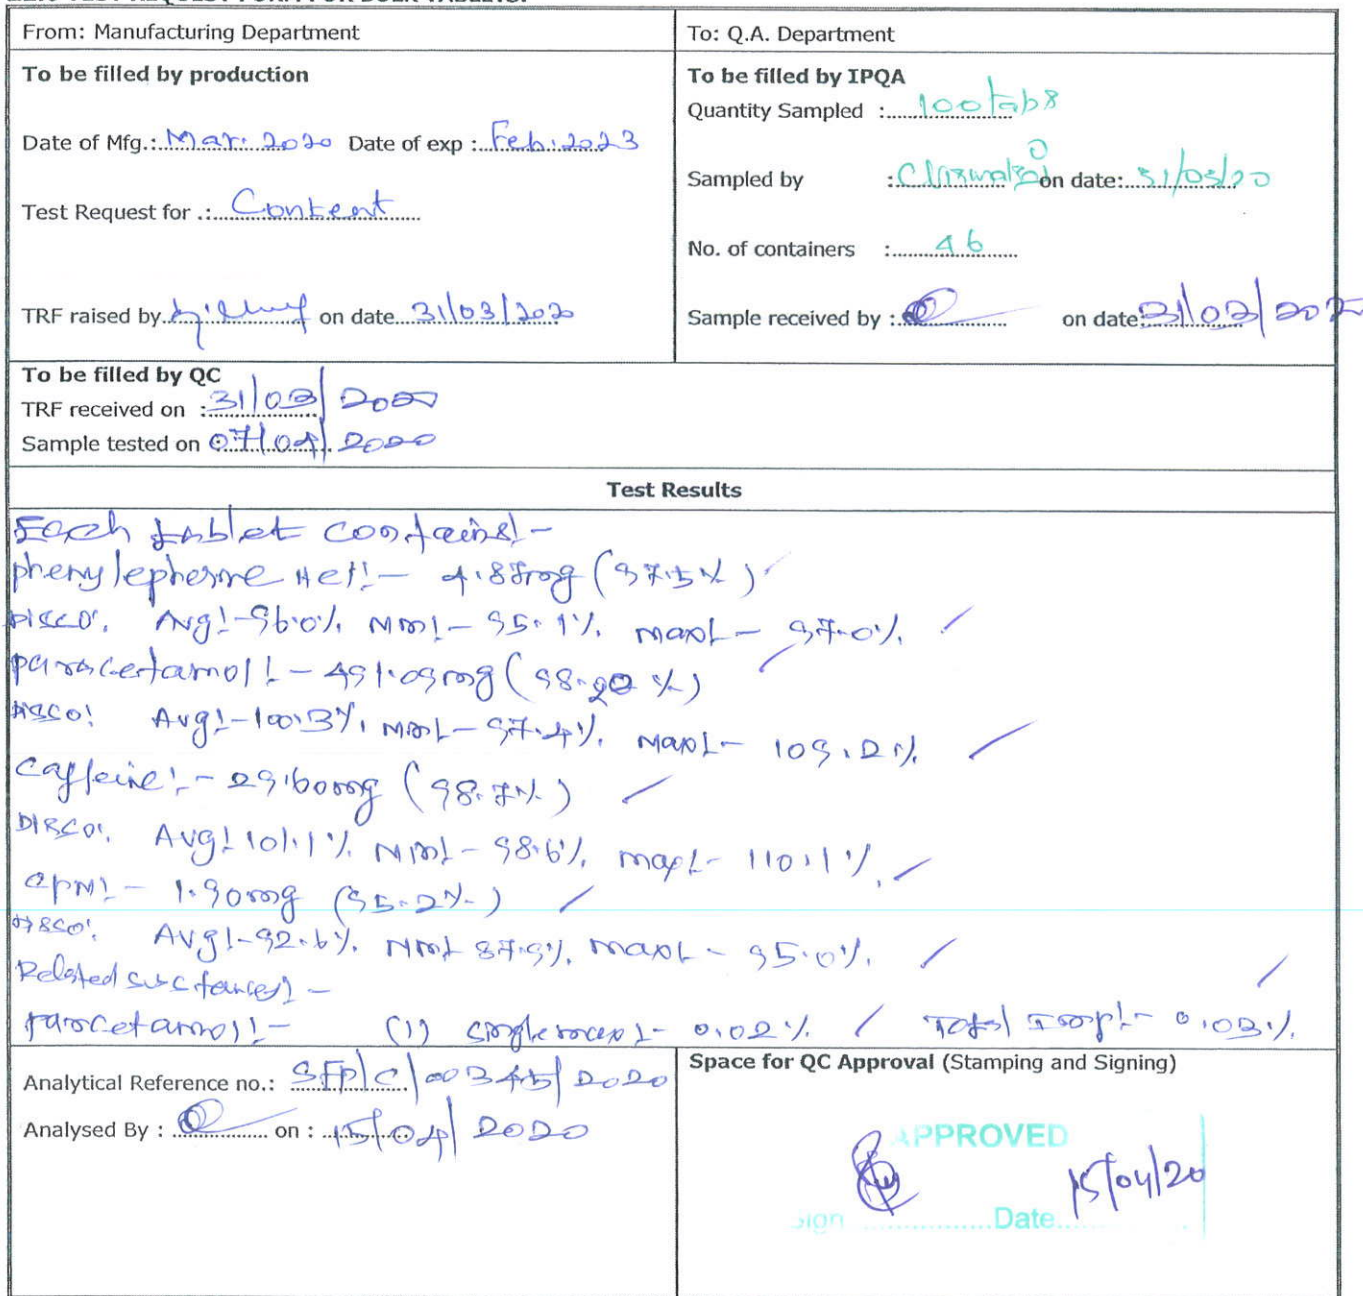 From: Manufacturing Department
To: Q.A. Department
To be filled by production
Date of Mfg.: Mar. 2020 Date of exp : Feb. 2023
Test Request for .: Content
TRF raised by on date 31/03/2020
To be filled by IPQA
Quantity Sampled : 100 tabs
Sampled by : on date: 31/03/20
No. of containers : 46
Sample received by : on date: 31/03/2020
To be filled by QC
TRF received on : 31/03/2020
Sample tested on 07/04/2020
Test Results
Each tablet contains:-
phenylepherine Hcl:- 4.87mg (97.5%)
DISSO: Avg:-96.0%, Min:- 95.1%, max:- 97.0%,
paracetamol:- 491.09mg (98.20 %)
DISSO: Avg:-100.3%, Min:- 97.4%, Max:- 109.2%
Caffeine:- 29.60mg (98.7%)
DISSO: Avg:-101.1%, Min:- 98.6%, max:- 110.1%,
CPM:- 1.90mg (95.2%)
DISSO: Avg:-92.6%, Min:- 87.9%, max:- 95.0%,
Related substances:-
Parcetamol:- (1) single max:- 0.02% Total Imp:- 0.03%,
Analytical Reference no.: SFP/C/00345/2020
Analysed By : on : 15/04/2020
Space for QC Approval (Stamping and Signing)
APPROVED
Sign Date 15/04/20